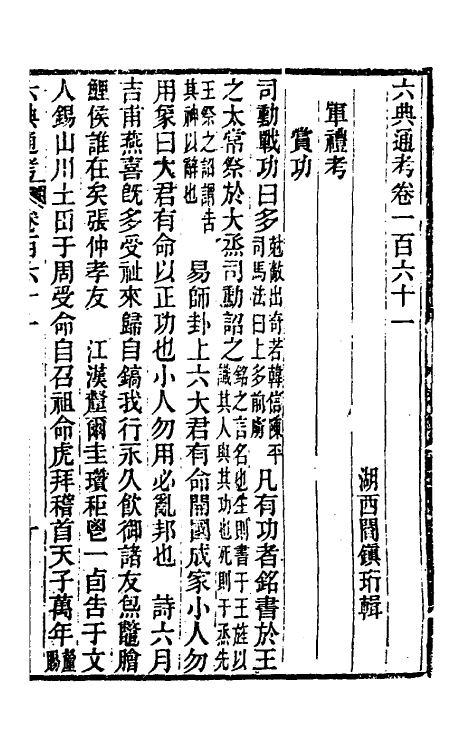 六典通考卷一百六十一
湖西閻鎮珩輯
軍禮考
賞功
司勳戰功曰多尅敵出奇若韓信陳平司馬法曰上多前虜凡有功者銘書於王
之太常祭於大烝司勳詔之銘之言名也生則書于王旌以識其人與其功也死則于烝先
王祭之詔謂告其神以辭也易師卦上六大君有命開國成家小人勿
用象曰大君有命以正功也小人勿用必亂邦也 詩六月
吉甫燕喜旣多受祉來歸自鎬我行永久飲御諸友炰鼈膾
鯉侯誰在矣張仲孝友 江漢釐爾圭瓚秬鬯一卣告于文
人錫山川土田于周受命自召祖命虎拜稽首天子萬年釐賜
六典通考 卷百六十一 一